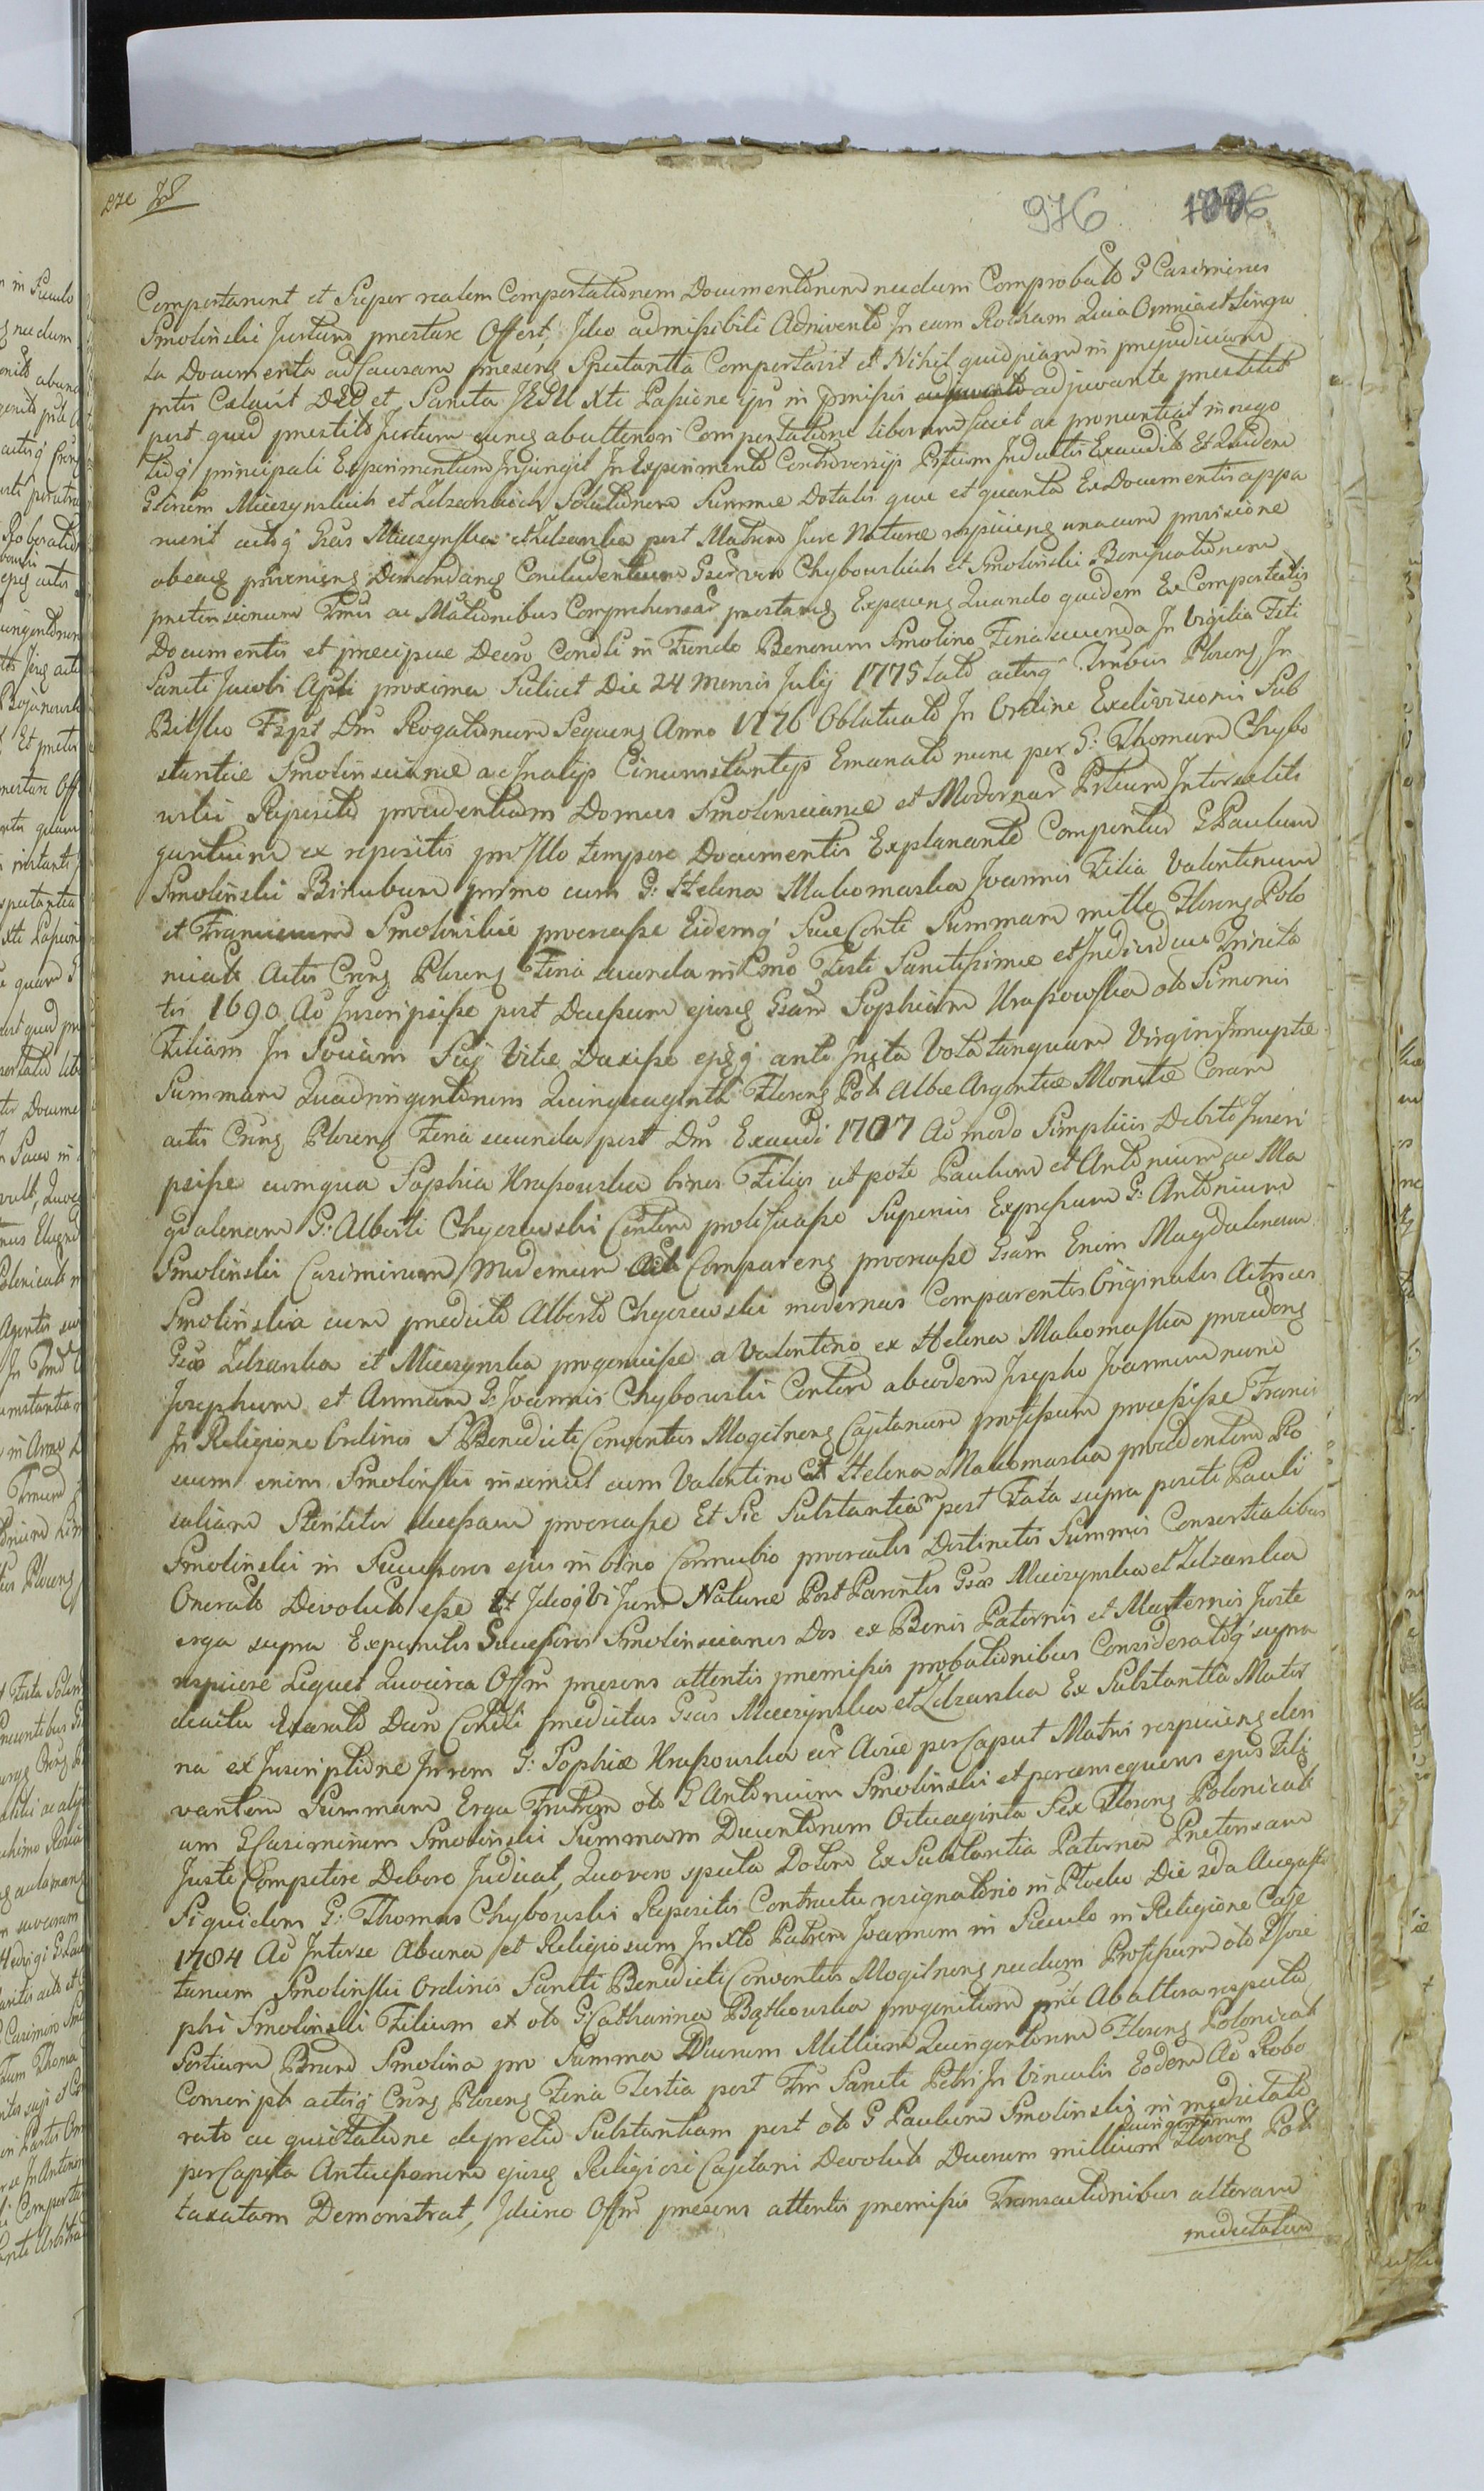 976 1006
Comportarent et Super realem Comportationem Documentorum necdum Comprobato G Casimirus
Smolinski Juratum prestare Offert, Ideo admissibili Adinvento In eam Rotham Quia Omnia et Singu
la Documenta ad Causam presens Spectantia Comportavit et Nihil quidpiam in prejudicium
ptis Celavit DEUS et Sancta JESU Xti Passione ipsi in premissis adjuvante prestitit
post quod prestito Juratum eunq ab ulteriori Comportatione liberum facit ac pronuntiat in nego
tioq principali Experimentum Injungit In Experimento Controversijs Ptium Inductis Exaudito Et Quidem
Gsorum Mierzynskich et Zdzarskich Solutionem Summae Dotalis quae et quanta Ex Documentis appa
ruerit actisq Gsas Mierzynska et Zdzarska post Matrem Jure Naturae respiciens unacum provisione
abeaq proveniens Demandareq Concludentium Gsor vero Chybowskich et Smolinski Bonificationem
pretensionum Tmis ac Mationibus Comprehensar prestareq Expocens Quando quidem Ex Comportatis
Documentis et precipue Decro Condli in Fundo Bonorum Smolino Feria secunda In Vigilia Fti
Sancti Jacobi Apli proxima Scilicet Die 24 Mensis Julij 1775 Lato actisq Tmbus Plocens In
Bielsko Fzpt Dm Rogationum Sequens Anno 1776 Oblatuato In Ordine Exdivisionis Sub
stantiae Smolinscianae ac In alijs Circumstantijs Emanato nunc per G: Thomam Chybo
wski Reposito procedentiam Domus Smolinscianae et Modernar Ptium Intersesiti
gantium ex repositis pro Illo tempore Documentis Explanante Comperitur G Paulum
Smolinski Binubum primo cum G: Helena Makomaska Joannis Filia Valentinum
et Franciscum Smolinskie procreasse Eidemq Suae Conti Summam mille Florens Polo
nicals Actis Crens Plocens Feria secunda in Cmo Festi Sanctissimae et Individuae Trinita
tis 1690 Ao Inscripsisse post Decessum ejusq Gsam Sophiam Krassowska olo Simonis
Filiam In Sociam Suj Vitae Duxisse ejsq ante Inita Vota tanquam Virgini Innuptae
Summam Quadringentorum Quinquaginta Florens Pol Albae Argenteae Monetae Coram
actis Crens Plocens Feria secunda post Dm Exaudi 1707 Ao modo Simplicis Debito Inscri
psisse cumqua Sophia Krassowska binos Filios utpote Paulum et Antonium ac Ma
gdalenam G: Alberti Chyczewski Contem proli fuasse Superius Expressum G: Antonium
Smolinski Casimirum Modernum Act Comparens procreasse Gsam Enim Magdalenam
Smolinska cum predicto Alberto Chyczewski modernas Comparentes Originales Actrices
Gsas Zdzarska et Mierzynska progenuisse a Valentino ex Helena Makomaska procedens
Josephum et Annam G: Joannis Chybowski Contem ab eodem Josepho Joannem nunc
In Religione Ordinis S Benedicti Conventus Mogilnens Cajetanum professum processisse Franci
scum enim Smolinski insimul cum Valentino Ex Helena Makomaska procedentem Ro
saliam Steriliter decessam procreasse Et Sic Substantiam post Fata supra positi Pauli
Smolinski in Successores ejus in bino Connubio procreatos Distinctis Summis Consortialibus
Onerato Devoluto esse Et Ideoq bi Jure Naturae Post Parentes Gsas Mierzynska et Zdzarska
erga supra Expansitos Successores Smolinscianos Dos ex Bonis Paternis et Maternis Juste
respicere Liquet Quocirca Offm presens attentis premissis probationibus Consideratoq supra
citato Exarato Decro Condli predictas Gsas Mierzynska et Zdzarska Ex Substantia Mater
na ex Inscriptione Jurem G: Sophiae Krassowska ear Aviae per Caput Matris respiciens deri
vantem Summam Erga Fratrem olo G Antonium Smolinski et perconsequens ejus Fili
um G Casimirum Smolinski Summam Ducentorum Octuaginta Sex Florens Polonicals
Juste Competere Debere Judicat, Quovero specta Dotem Ex Substantia Paterna Pretensam
Siquidem G: Thomas Chybowski Repositis Contractu resignatorio in Plocko Die 2da Augusti
1784 Ao Interse Abuna et Religiosum In Xto Patrem Joannem in Saeculo in Religione Caje
tanum Smolinski Ordinis Sancti Benedicti Conventus Mogilnens necdum Professum olo G Jose
phi Smolinski Filium ex olo G: Catharina Bątkowska progenitum pnt Ab altera respectu
Sortium Bnrum Smolina pro Summa Duorum Millium Quingentorum Florens Polonical
Conscript actisq Crens Plocens Feria Tertia post Fm Sancti Petri In Vinculis Eodem Ao Robo
rato ac quietatione depretio Substantiam post olo G Paulum Smolinski in medietate
per Capita Antecessorum ejusq Religiosi Cajetani Devoluto Duorum millium Quingentorum Florens Pol
taxatam Demonstrat, Idcirco Offm presens attentis premissis Transactionibus alteram
medietatem